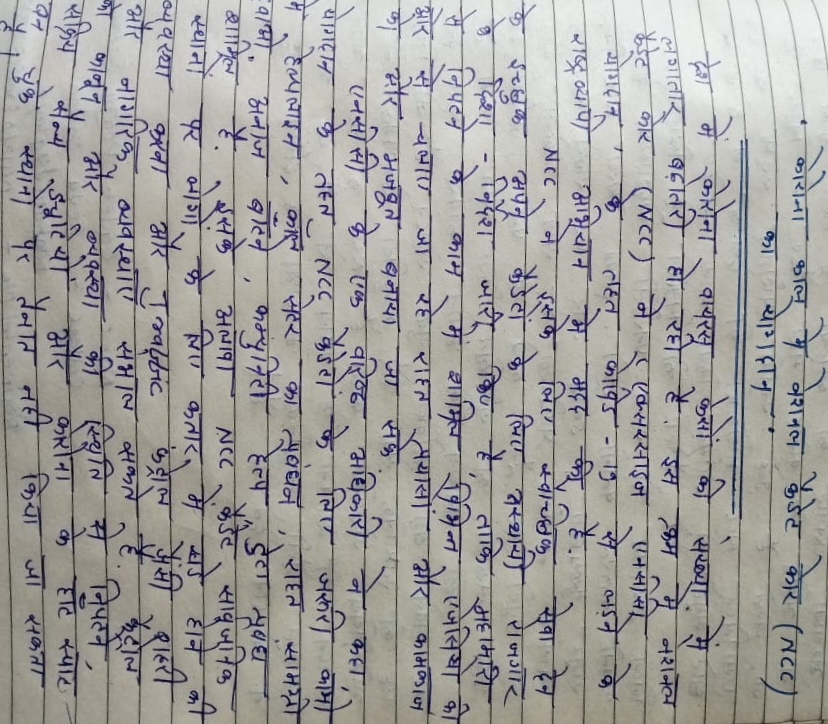 कोरोना काल में नेशनल कैडेट कोर (NCC)
का योगदान
देश में कोरोना वायरस केसों की संख्या में
लगातार बढ़ोतरी हो रही है. इस क्रम में नेशनल
कैडेट कोर (NCC) ने 'एक्सरसाइज एनसीसी
योगदान' के तहत कोविड-19 से लड़ने के
राष्ट्रव्यापी अभियान में मदद की है.
NCC ने इसके लिए स्वैच्छिक सेवा देने
के इच्छुक अपने कैडेटों के लिए अस्थायी रोजगार
के दिशा-निर्देश जारी किए हैं, ताकि महामारी
से निपटने के काम में शामिल विभिन्न एजेंसियों की
ओर से चलाए जा रहे राहत प्रयासों और कामकाज
को और मजबूत बनाया जा सके
एनसीसी के एक वरिष्ठ अधिकारी ने कहा,
योगदान के तहत NCC कैडेटों के लिए जरूरी कामों
में हेल्पलाइन, कॉल सेंटर का प्रबंधन, राहत सामग्री
दवाओं, अनाज बांटने, कम्युनिटी हेल्प, डेटा प्रबंधन
शामिल हैं. इसके अलावा NCC कैडेट सार्वजनिक
स्थानों पर लोगों के लिए कतार में खड़े होने की
व्यवस्था करना और ट्रैफिक कंट्रोल जैसी शहरी
और नागरिक व्यवस्थाएं संभाल सकते हैं. कैडेटों
को कानून और व्यवस्था की स्थिति से निपटने,
सक्रिय सैन्य ड्यूटियों और कोरोना के हॉट स्पॉट
वन चुके स्थानों पर तैनात नहीं किया जा सकता
है।